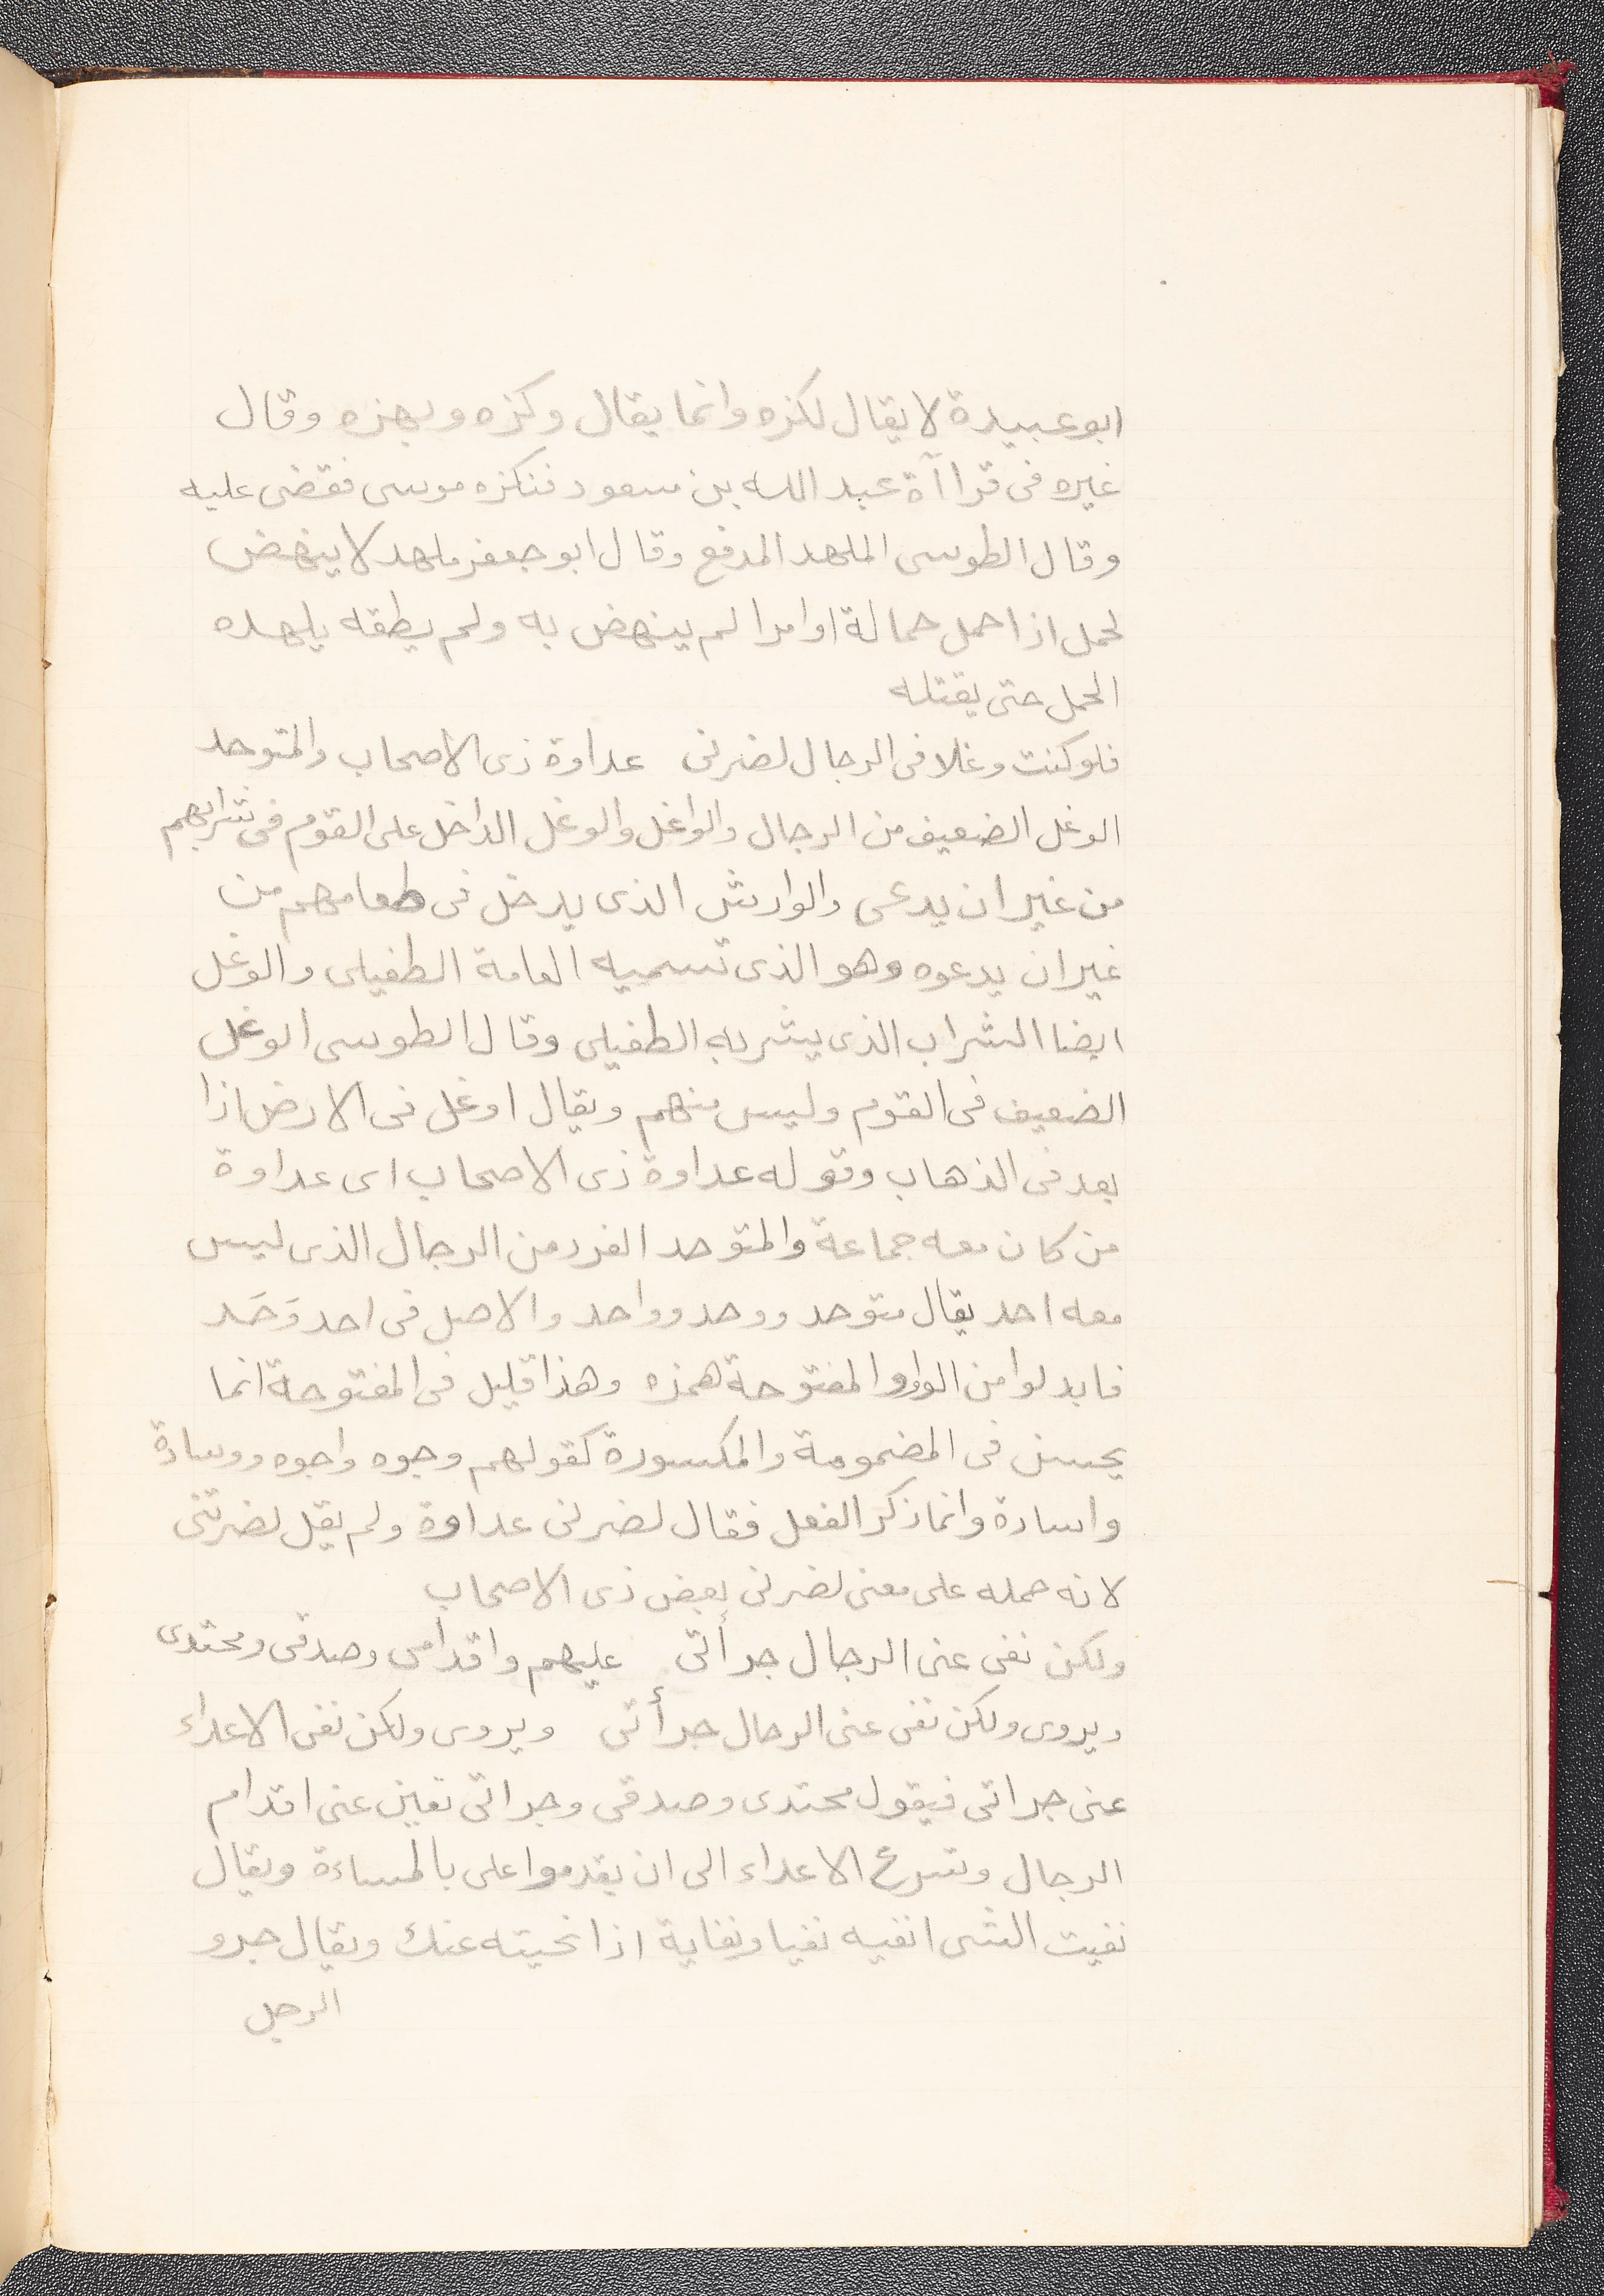 ابو عبيدة لا يقال لكزه وانما يقال وكزه وبهزه وقال
غيره فى قرا آة عبد الله بن مسعود فنكزه موسى فقضى عليه
وقال الطوسى الملهد المدفع وقال ابو جعفر ملهد لا ينهض
لحمل اذا حمل حمالة او امرا لم ينهض به ولم يطقه يلهده
الحمل حتى يقتله
فلو كنت وغلا فى الرجال لضرنى عداوة ذى الاصحاب والمتوحد
الوغل الضعيف من الرجال والواغل والوغل الداخل على القوم فى شرابهم
من غير ان يدعى والوارش الذى يدخل فى طعامهم من
غير ان يدعوه وهو الذى تسميه العامة الطفيلى والوغل
ايضا الشراب الذى يشربه الطفيلى وقال الطوسى الوغل
الضعيف فى القوم وليس منهم ويقال اوغل فى الارض اذا
بعد فى الذهاب وقوله عداوة ذى الاصحاب اى عداوة
من كان معه جماعة والمتوحد الفرد من الرجال الذى ليس
معه احد يقال متوحد ووحد وواحد والاصل فى احد وَحَد
فابدلوا من الواو المفتوحة همزه وهذا قليل فى المفتوحة انما
يحسن فى المضمومة والمكسورة كقولهم وجوه واجوه ووسادة
واسادة وانما ذكر الفعل فقال لضرنى عداوة ولم يقل لضرتنى
لانه حمله على معنى لضرنى بعض ذى الاصحاب
ولكن نفى عنى الرجال جرأتى عليهم واقدامى وصدقى ومحتدى
ويروى ولكن نفى عنى الرجال جرأتى ويروى ولكن نفى الاعداء
عنى جراتى فيقول محتدى وصدقى وجراتى نفين عنى اقدام
الرجال وتسرع الاعداء الى ان يقدموا على بالمساءة ويقال
نفيت الشى انفيه نفيا ونفاية اذا نحيته عنك ويقال جرو
الرجل